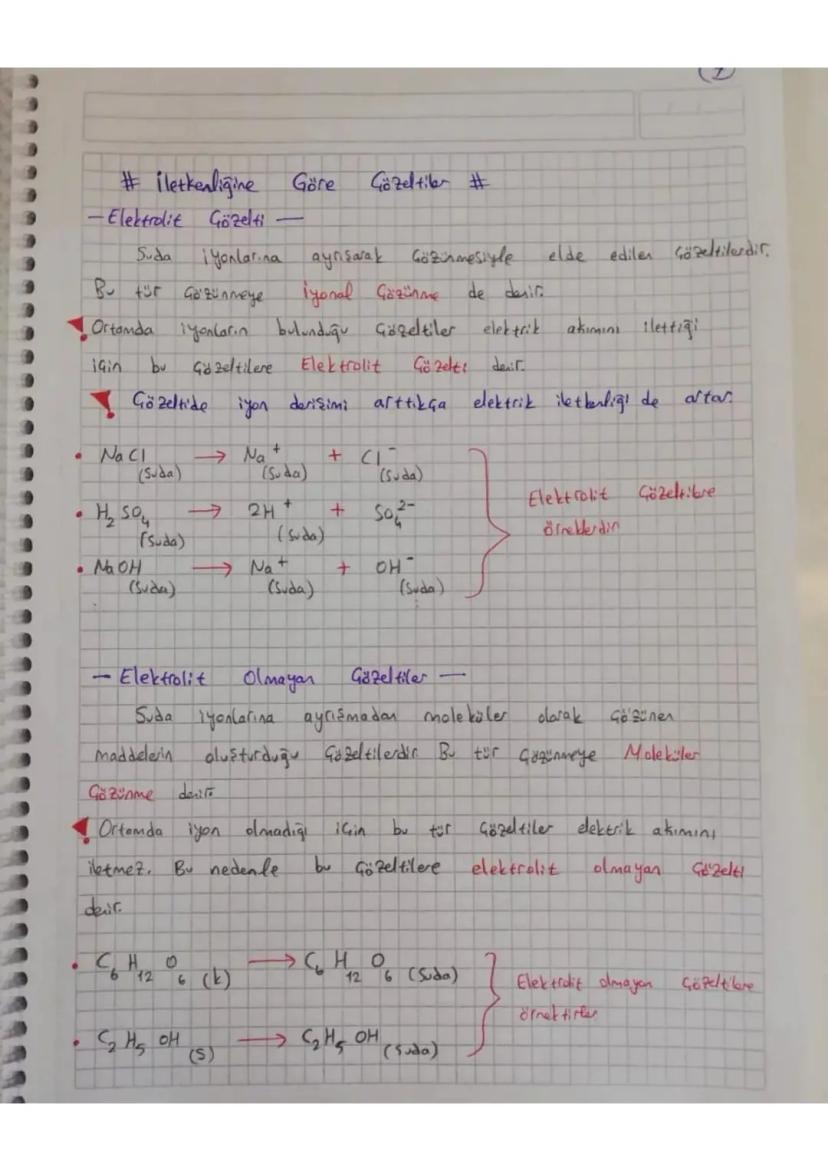 # İletkenliğine Göre Çözeltiler #
- Elektrolit Çözelti -
Suda iyonlarına ayrışarak çözünmesiyle elde edilen çözeltilerdir.
Bu tür çözünmeye iyonal Çözünme de denir.
! Ortamda iyonların bulunduğu çözeltiler elektrik akımını ilettiği
için bu çözeltilere Elektrolit Çözelti denir.
! Çözeltide iyon derişimi arttıkça elektrik iletkenliği de artar.
• NaCl (Suda) → Na⁺ (Suda) + Cl⁻ (Suda)
• H₂SO₄ (Suda) → 2H⁺ (Suda) + SO₄²⁻
• NaOH (Suda) → Na⁺ (Suda) + OH⁻ (Suda)
Elektrolit Çözeltilere
örneklerdir
- Elektrolit Olmayan Çözeltiler -
Suda iyonlarına ayrışmadan moleküler olarak çözünen
maddelerin oluşturduğu çözeltilerdir. Bu tür çözünmeye Moleküler
Çözünme denir.
! Ortamda iyon olmadığı için bu tür çözeltiler elektrik akımını
iletmez. Bu nedenle bu çözeltilere elektrolit olmayan çözelti
denir.
• C₆H₁₂O₆ (k) → C₆H₁₂O₆ (Suda)
• C₂H₅OH (s) → C₂H₅OH (suda)
Elektrolit olmayan çözeltilere
örnektirler